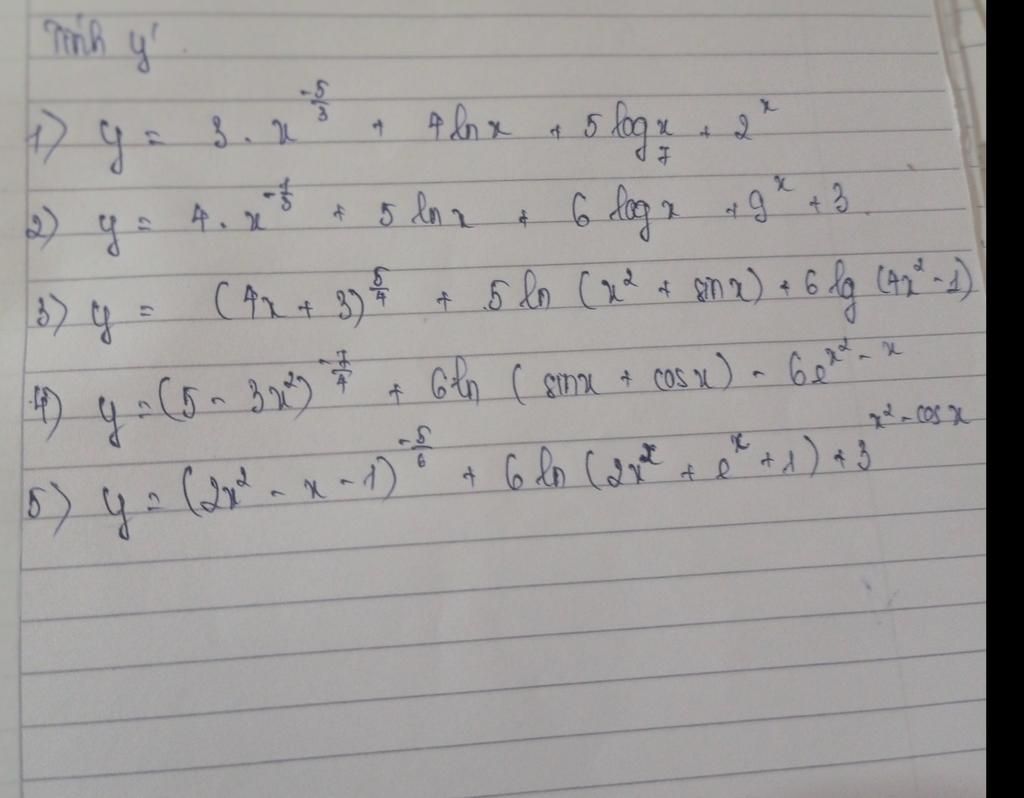 Tính y'.
1) y = 3 . x^{-5/3} + 4 ln x + 5 log_7 x + 2^x
2) y = 4 . x^{-1/5} + 5 ln x + 6 log x + 9^x + 3
3) y = (4x + 3)^{5/4} + 5 ln (x^2 + sin x) + 6 lg (4x^2 - 1)
4) y = (5 - 3x^2)^{-7/4} + 6 ln (sin x + cos x) - 6e^{x^2 - x}
5) y = (2x^2 - x - 1)^{-5/6} + 6 ln (2x^x + e^x + 1) + 3^{x^2 - cos x}